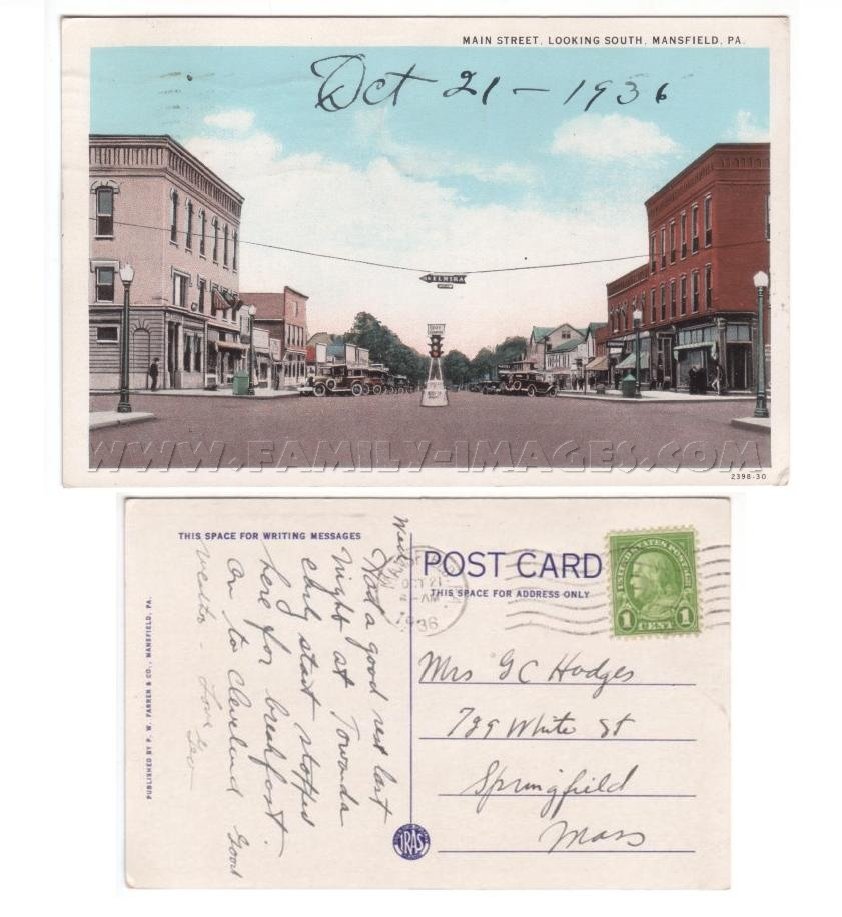 MAIN STREET, LOOKING SOUTH, MANSFIELD, PA.
Oct 21 - 1936
ELMIRA
WWW.FAMILY-IMAGES.COM
2398-30
THIS SPACE FOR WRITING MESSAGES
Wed
Had a good rest last
night at Towanda
early start stopped
here for breakfast.
on to Cleveland Good
Love Geo
PUBLISHED BY F. W. FARRER & CO., MANSFIELD, PA.
OCT 21
AM
1936
POST CARD
THIS SPACE FOR ADDRESS ONLY
UNITED STATES POSTAGE
1 CENT 1
Mrs G C Hodges
789 White St
Springfield
Mass